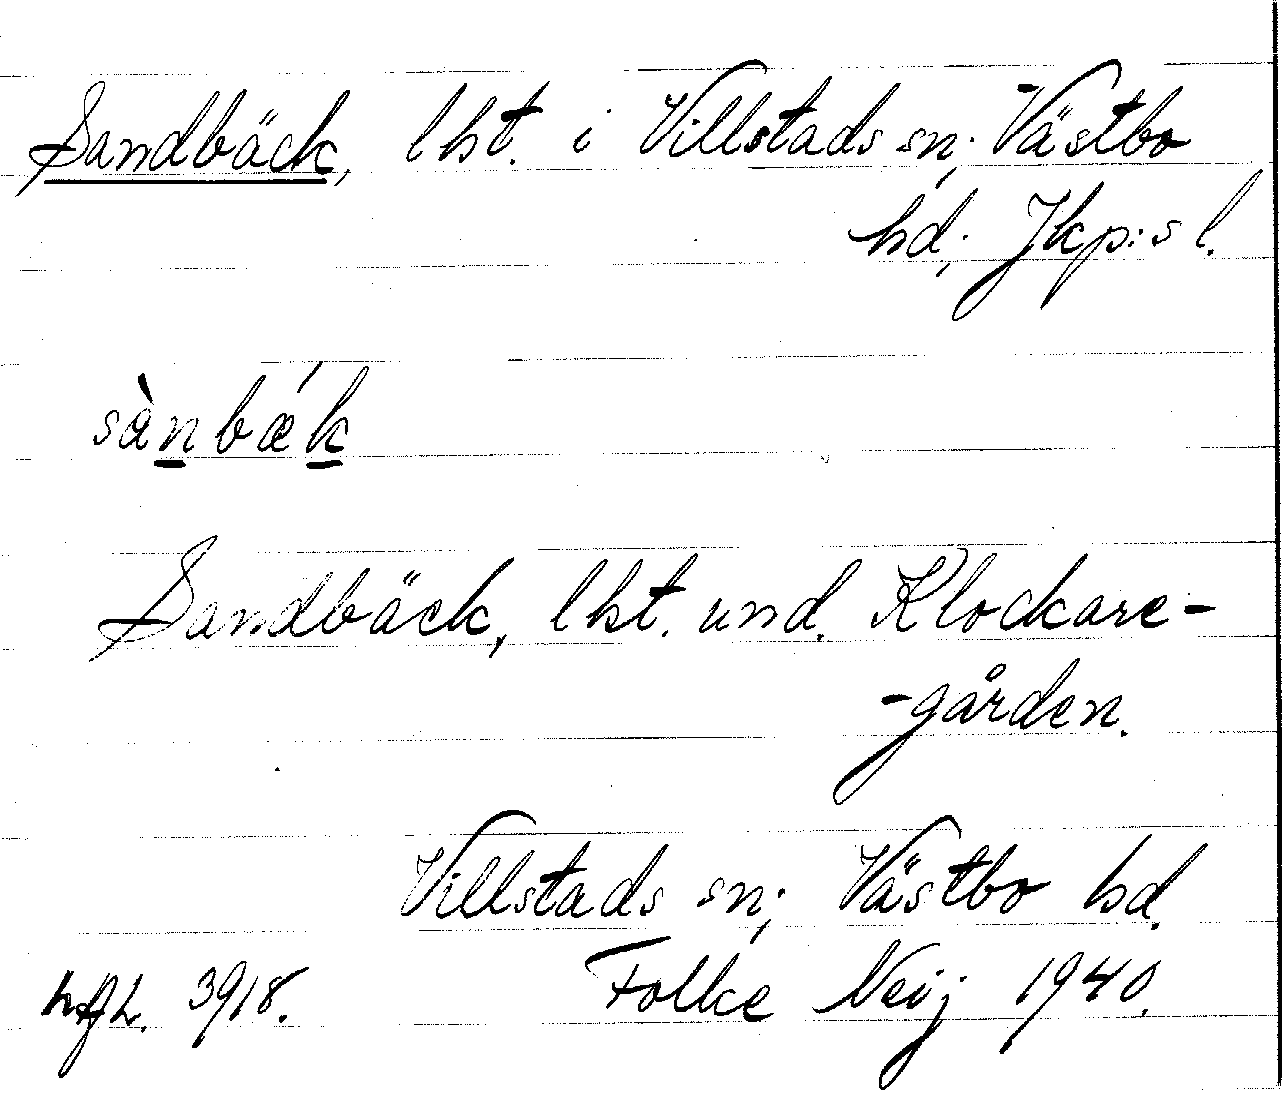 Sandbäck, lht. i Villstads sn; Västbo
hd; Jkp:s l.
sànbæ´k
Sandbäck, lht. und. Klockare-
-gården.
Villstads sn; Västbo hd.
3918. Folke Neij 1940.